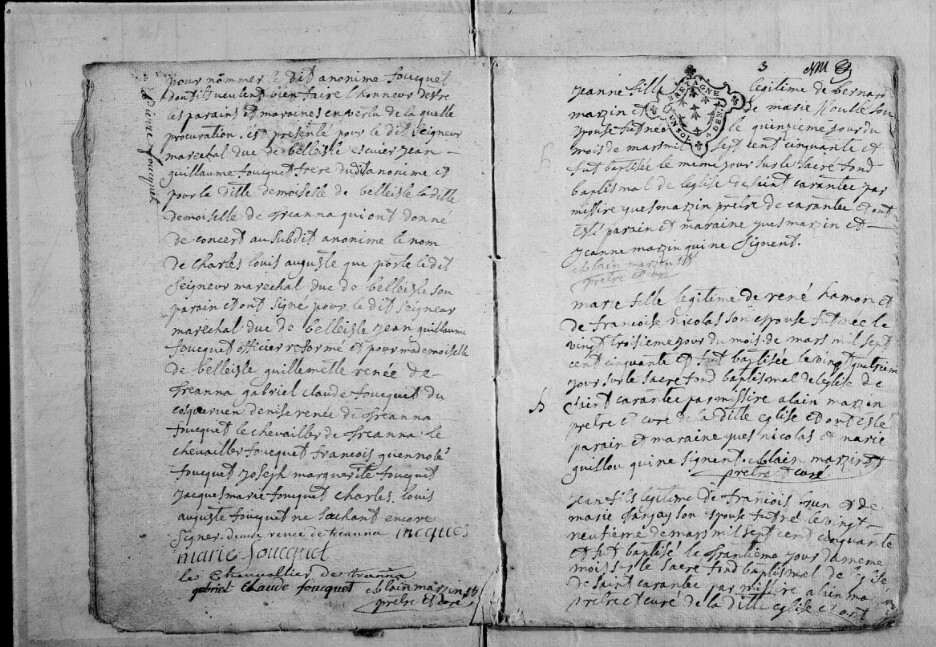 pierre fouquet
pour nommer le dit anonime foucquet
dont ils veulent bien faire lhonneur destre
les parains et maraines en verte de la quelle
procuration, est presenté pour le dit Seigneur
marechal duc de belleisle jean
guillaume foucquet frere du dit anonime et
pour la ditte demoiselle de belleisle la ditte
demoiselle de treanna qui ont donné
de concert au susdit anonime le nom
de Charles louis auguste que porte le dit
Seigneur marechal duc de belleisle son
parain et ont signé pour le dit Seigneur
marechal duc de belleisle jean guillaume
foucquet officier reformé et pour mademoiselle
de belleisle guillemette renée de
treanna gabriel claude foucquet du
denise renée de treanna
foucquet le chevallier de treanna le
chevallier foucquet francois guennolé
foucquet joseph marguerite foucquet
jacques marie foucquet charles louis
auguste foucquet ne sachant encore
signer. denise renée de treanna jacques
marie foucquet
le chevallier de treanna
gabriel claude foucquet alain marzin
pretre et curé
3
jeanne fille legitime de bernard
marzin et de marie
epouse fut née le quinzieme jour du
mois de mars mil sept cent cinquante et
fut baptisée le meme jour sur le sacre fond
baptismal de leglise de saint carantec par
missire yves marzin pretre de carantec et ont
esté parain et maraine yves marzin et
jeanne marzin qui ne signent.
alain marzin
pretre et curé
marie fille legitime de rené hamon et
de francoise nicolas son epouse fut née le
vingt troisieme jour du mois de mars mil sept
cent cinquante et fut baptisée le vingt quatrieme
jour sur le sacre fond baptismal de leglise de
saint carantec par missire alain marzin
pretre et curé de la ditte eglise et ont esté
parain et maraine yves nicolas et marie
guillou qui ne signent. alain marzin
pretre et curé
jean fils legitime de francois et de
marie son epouse fut né le vingt
neufieme de mars mil sept cent cinquante
et fut baptisé le trantieme jour du meme
mois sur le sacre fond baptismal de leglise
de saint carantec par missire alain
pretre et curé de la ditte eglise et ont